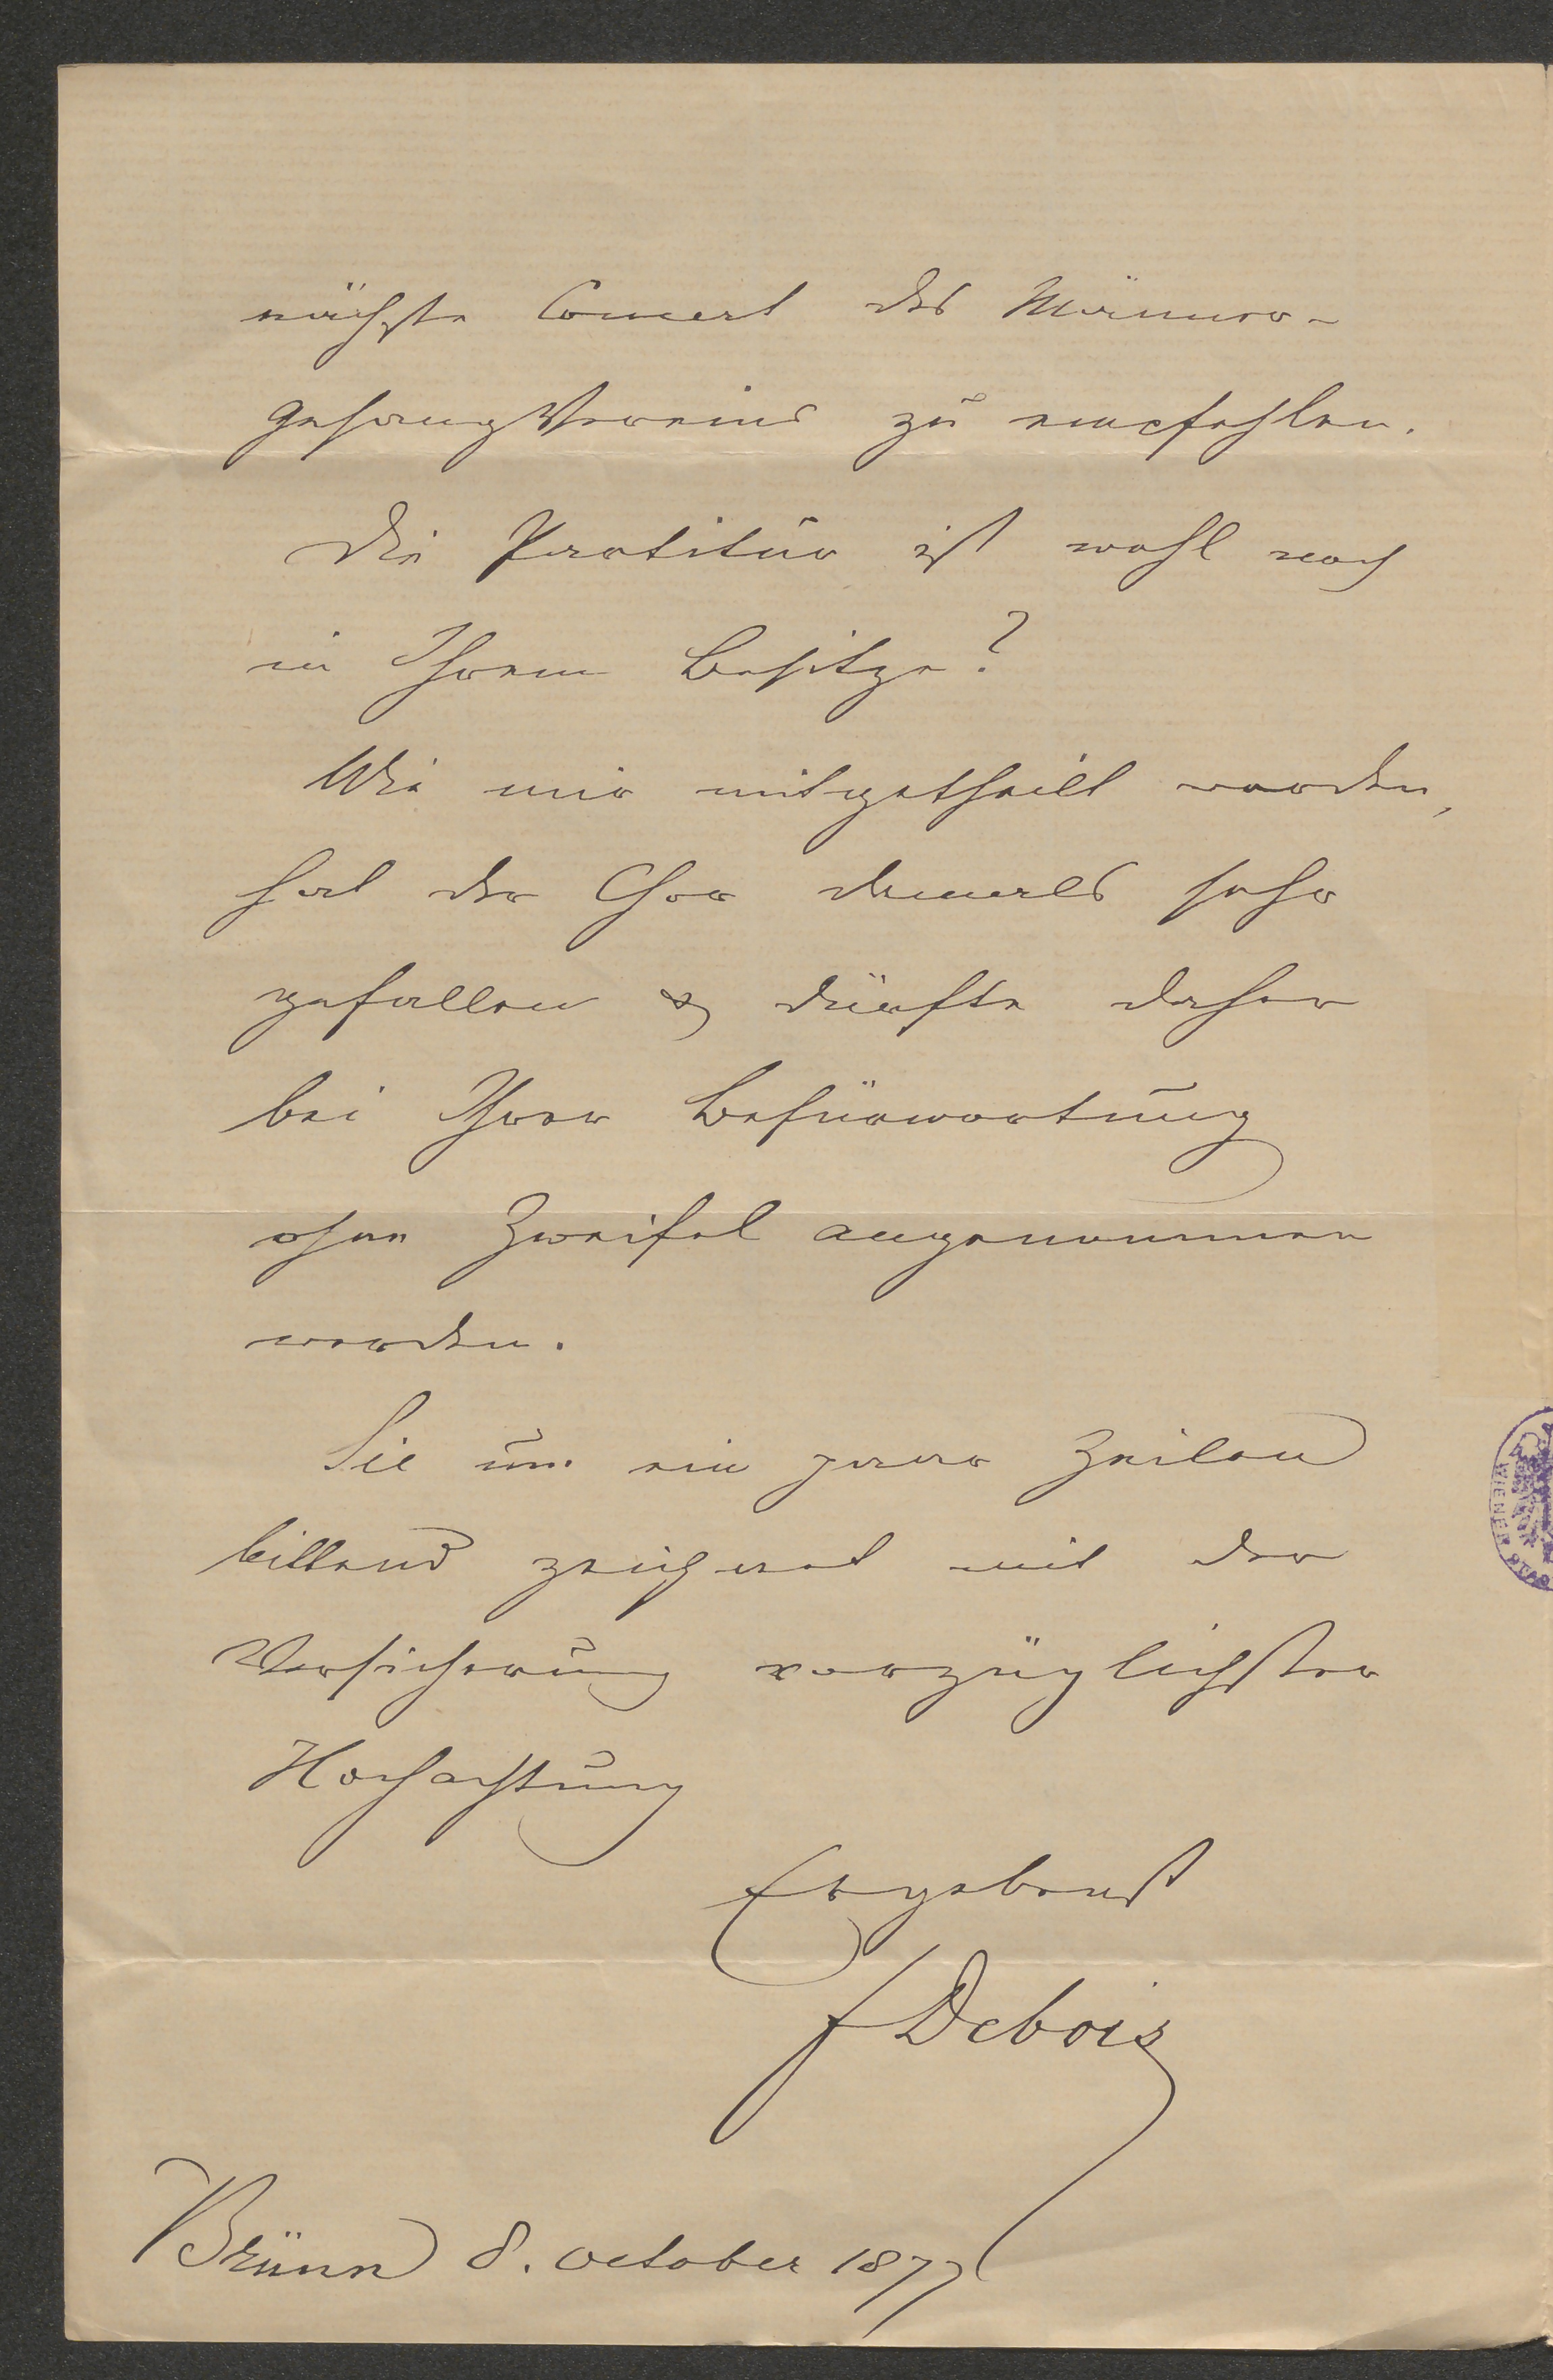 nächste Concert des Männer-
gesangVereins zu empfehlen.
Die Partitur ist wohl noch
in Ihrem Besitze?
Wie mir mitgetheilt worden,
hat der Chor damals sehr
gefallen & dürfte daher
bei Ihrer Befürwortung
ohne Zweifel angenommen
werden.
Sie um ein paar Zeilen
bittend zeichnet mit der
Versicherung vorzüglichster
Hochachtung
Ergebenst
FDebois
Brünn 8. October 1877
WIENER STAD